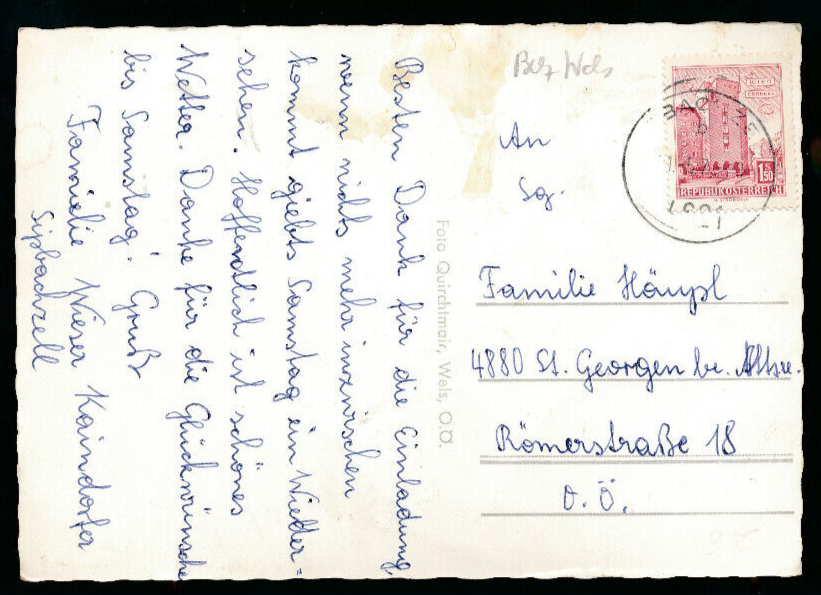 Besten Dank für die Einladung,
wenn nichts mehr inzwischen
kommt giebts Samstag ein Wieder-
sehen. Hoffendlich ist schönes
Wetter. Danke für die Glückwünsche
bis Samstag! Gruß
Familie Wieser Kaindorfer
Sipbachzell
Foto Quirchtmair, Wels, O.Ö.
Bez Wels
An
Sg.
Familie Häupl
4880 St. Georgen be. Atter.
Römerstraße 18
O.Ö.
WIEN
1.50
REPUBLIK ÖSTERREICH